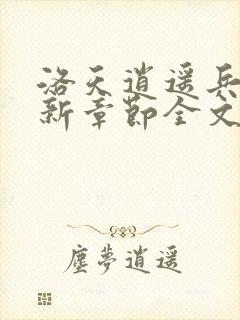 洛天逍遥兵
新章節全文
塵夢逍遥